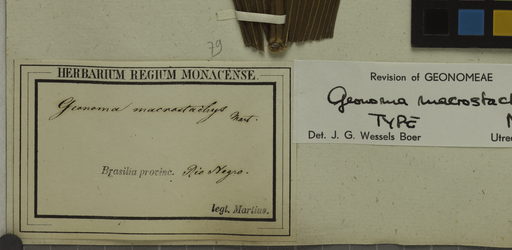 79
HERBARIUM REGIUM MONACENSE.
Geonoma macrostachys
Mart.
Brasilia provinc. Rio Negro.
legt. Martius.
Revision of GEONOMEAE
Geonoma macrostac
TYPE
Det. J. G. Wessels Boer
Utrec